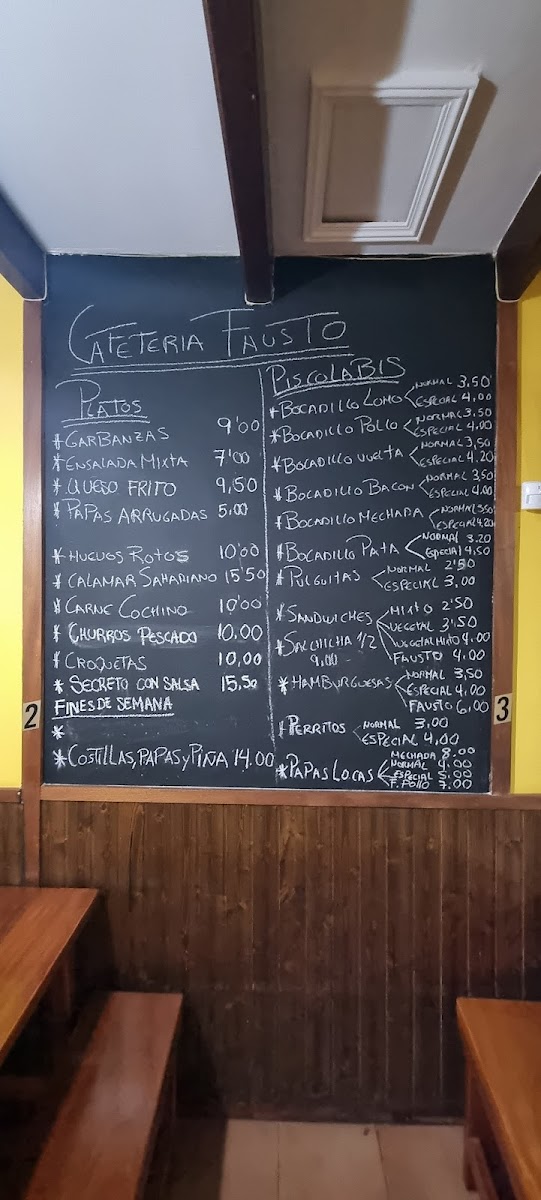 CAFETERIA FAUSTO
PLATOS
* GARBANZAS 9'00
* ENSALADA MIXTA 7'00
* QUESO FRITO 9,50
* PAPAS ARRUGADAS 5,00
* HUEVOS ROTOS 10'00
* CALAMAR SAHARIANO 15'50
* CARNE COCHINO 10'00
* CHURROS PESCADO 10,00
* CROQUETAS 10,00
* SECRETO CON SALSA 15,50
FINES DE SEMANA
*
* COSTILLAS, PAPAS Y PIÑA 14.00
PISCOLABIS
* BOCADILLO LOMO NORMAL 3,50
ESPECIAL 4,00
* BOCADILLO POLLO NORMAL 3,50
ESPECIAL 4,00
* BOCADILLO VUELTA NORMAL 3,50
ESPECIAL 4.20
* BOCADILLO BACON NORMAL 3,50
ESPECIAL 4.00
* BOCADILLO MECHADA NORMAL 3,50
ESPECIAL 4,20
* BOCADILLO PATA NORMAL 3.20
ESPECIAL 4,50
* PULGUITAS NORMAL 2'50
ESPECIAL 3,00
* SANDWICHES MIXTO 2'50
VEGETAL 3'50
VEGETAL MIXTO 4,00
FAUSTO 4,00
* SALCHICHA 1/2
9,00
* HAMBURGUESAS NORMAL 3,50
ESPECIAL 4,00
FAUSTO 6,00
* PERRITOS NORMAL 3,00
ESPECIAL 4,00
* PAPAS LOCAS MECHADA 8.00
NORMAL 4.00
ESPECIAL 5.00
F. POLLO 7.00
2
3